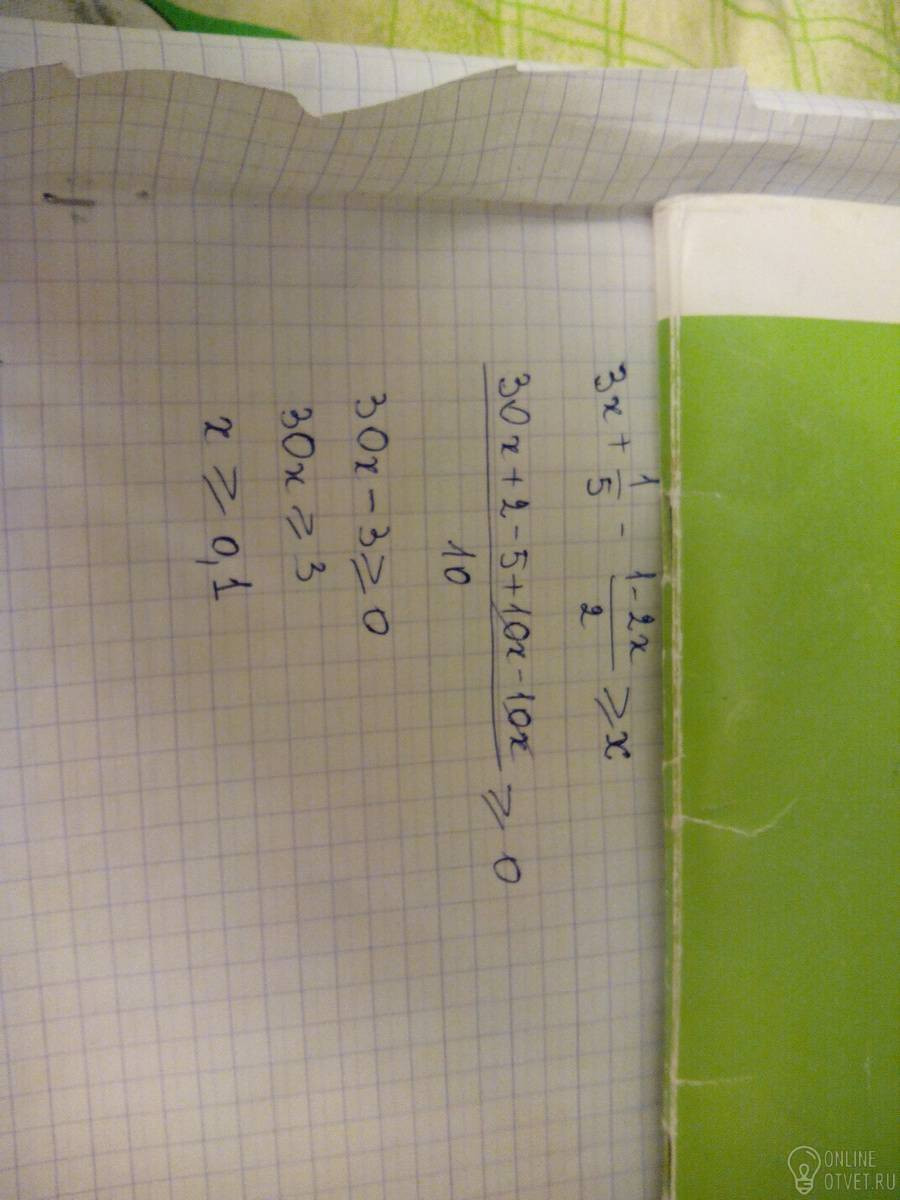 3x + 1/5 - (1-2x)/2 ⩾ x
(30x+2-5+10x-10x)/10 ⩾ 0
30x-3⩾0
30x⩾3
x ⩾ 0,1
ONLINE
OTVET.RU